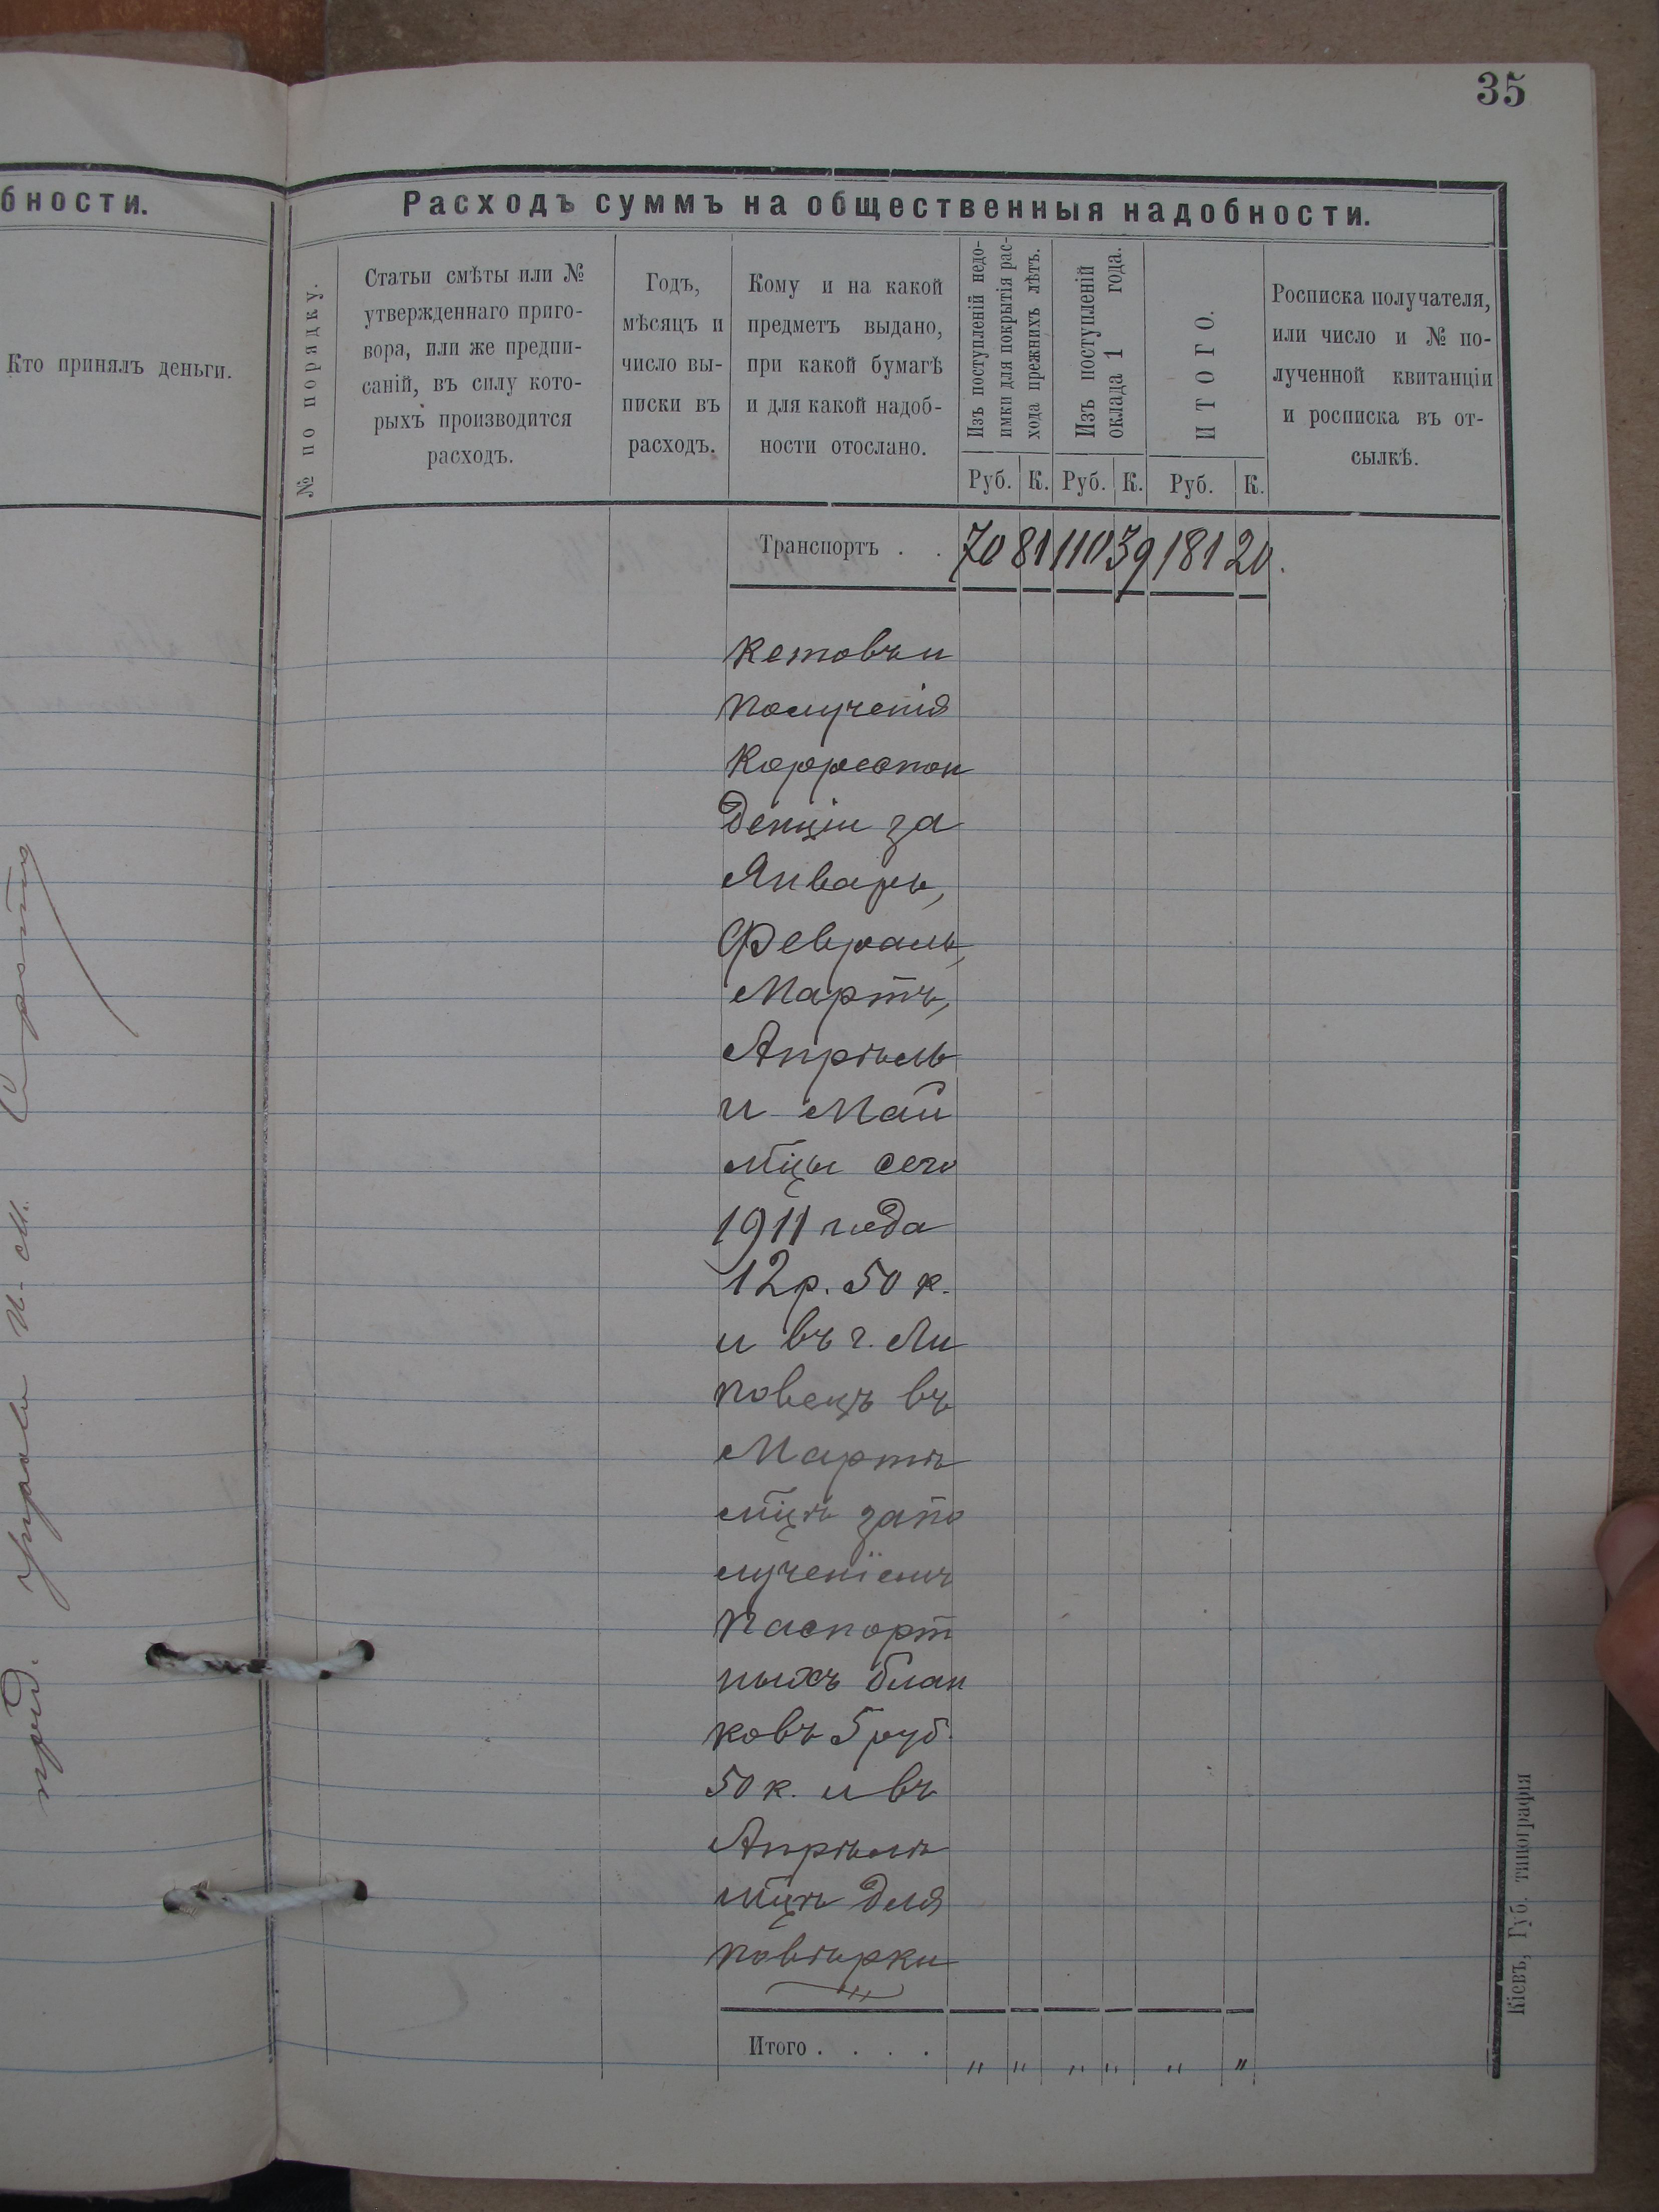 35
бности.
Кто принялъ деньги.
Расходъ суммъ на общественныя надобности.
№ по порядку.
Статьи смѣты или №
утвержденнаго приго-
вора, или же предпи-
саній, въ силу кото-
рыхъ производится
расходъ.
Годъ,
мѣсяцъ и
число вы-
писки въ
расходъ.
Кому и на какой
предметъ выдано,
при какой бумагѣ
и для какой надоб-
ности отослано.
Изъ поступленій недо-
имки для покрытія рас-
хода прежнихъ лѣтъ.
Изъ поступленій
оклада 1 года.
ИТОГО.
Росписка получателя,
или число и № по-
лученной квитанціи
и росписка въ от-
сылкѣ.
Руб. К. Руб. К. Руб. К.
Транспортъ . . 70 81 110 39 181 20.
кетовъ и
полученія
Корреспон
денціи за
Январь,
Февраль,
Мартъ,
Апрѣль
и Май
мцы сего
1911 года
12 р. 50 к.
и въ г. Ли
повецъ въ
Мартѣ
мцѣ за по
лученіемъ
Паспорт
ныхъ блан
ковъ 5 руб.
50 к. и въ
Апрѣлѣ
мцѣ для
повѣрки
Итого . . . . " " " " " "
Кіевъ, Губ. типографія